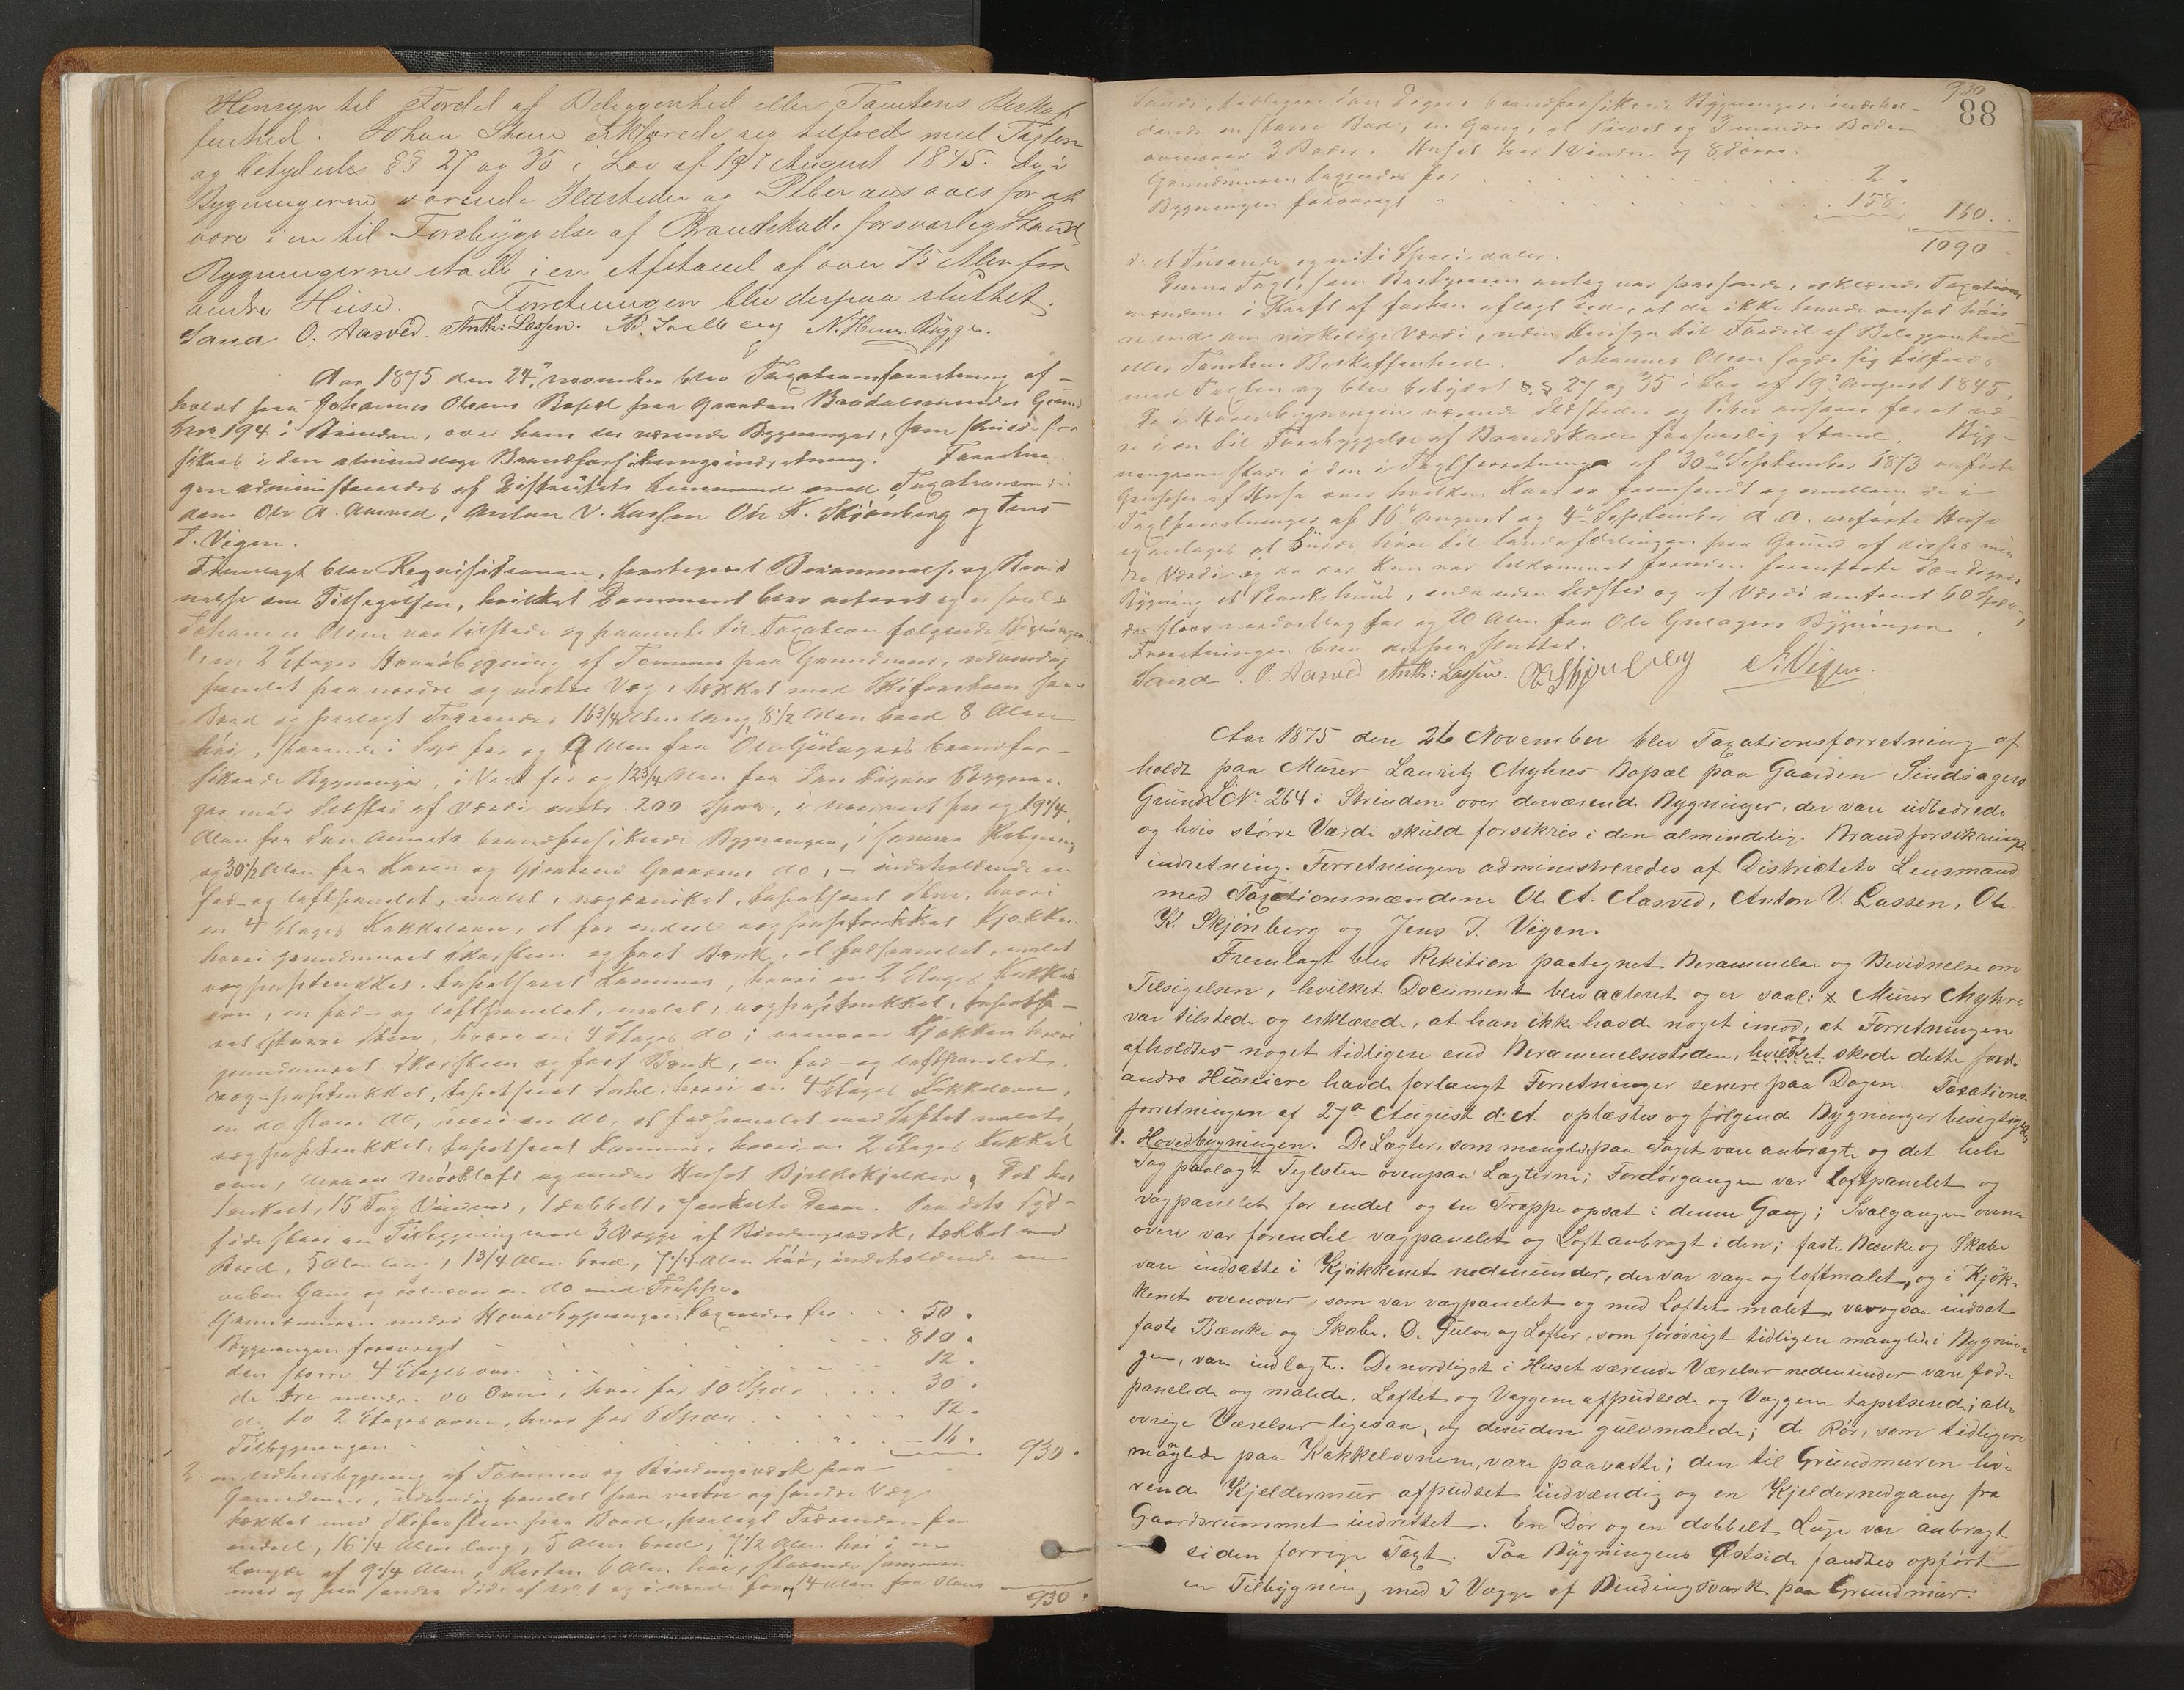 Hensyn til Fordel af Beliggenhed eller Tomtens Beskaf
fenhed. Johan Steen erklærede sig tilfreds med Taxten
og betydedes §§ 27 og 35 i Lov af 19de August 1845. De i
Bygningerne værende Ildsteder og Piber ansaaes for at
være i en til Forebyggelse af Brandskade forsvarlig Stand
Bygningerne staa i en Afstand af over 75 Alen fra
andre Huse. Forretningen blev derpaa sluttet.
Sand O. Aasved. Anth: Lassen. N. Henr. Bygge.
Aar 1875 den 24de November blev Taxationsforretning af-
holdt paa Johannes Olsens Bopæl paa Gaarden Brødalsmundes Grund
No 194 i Strinden, over hans der værende Bygninger, som skulde for
sikres i den almindelige Brandforsikringsindretning. Forretnin-
gen administreredes af Distriktets Lensmand med Taxationsmæn-
dene Ole A. Aasved, Anton V. Lassen Ole K. Skjønberg og Jens
J. Vigen.
Fremlagt blev Requisitionen, paategnet Berammelse og Bevid
nelse om Tilsigelsen, hvilket Document blev acteret og er saal:
Johannes Olsen var tilstede og paaviste til Taxation følgende Bygninger
1, en 2 Etages Hovedbygning af Tømmer paa Grundmur, udvendig
panelet paa nordre og vestre Væg, tækket med Skifersteen paa
Bord og paalagt Tagrender, 16 3/4 Alen lang, 8 1/2 Alen bred 8 Alen
høi, staaende i Syd for og 9 Alen fra Ole Gulagers brandfor-
sikrede Bygninger, i Vest for og 12 3/4 Alen fra Jan Signes Bygnin-
ger med Ildsted af Værdi omtr. 200 Spd., i nordvest for og 19 1/4
Alen fra brandforsikrede Bygninger, i samme Retning
og 30 1/2 Alen fra Karen og do, - indeholdende en
fod- og loftpanelet, malet, tapetseret Stue, hvori
en 4 Etages Kakkelovn, et for endeel Kjøkken
hvori grundmuret Skorsteen og fast Bænk, et fodpanelet, malet
tapetseret Kammer, hvori en 2 Etages Kakkel
ovn, en fod- og loftpanelet, malet, tapetse-
ret større Stue, hvori en 4 Etages do; ovenover Kjøkken hvori
grundmuret Skorsteen og fast Bænk, en fod- og loftpanelet
tapetseret Stue, hvori en 4 Etages Kakkelovn,
en do større do, hvori en do, et fodpanelet med Loftet malet,
tapetseret Kammer, hvori en 2 Etages Kakkel
ovn, derover mørkloft og under Huset Bjelkekjelder. Det har
15 Fag Vinduer, 1 dobbelt, enkelte Døre. Paa dets Syd-
side staar en Tilbygning med 3 Vægge af Bindingsværk, tækket med
Bord, 5 Alen lang, 1 3/4 Alen bred, 7 1/4 Alen høi, indeholdende en
aaben Gang og ovenover en do med Trappe.
Grundmuren under Hovedbygningen taxeredes for . . . 50 .
Bygningen forøvrigt . . . 810 .
den større 4 Etagesovn . . . 12 .
de tre mindre do Ovne, hver for 10 Spd. . . . 30 .
de to 2 Etagesovne, hver for 6 Spd. . . . 12 .
Tilbygningen . . . 16 . 930 .
2. en Udhusbygning af Tømmer og Bindingsværk paa
Grundmur, udvendig panelet paa vestre og søndre Væg
tækket med Skifersteen paa Bord, paalagt Tagrender for
endeel, 16 1/4 Alen lang, 5 Alen bred, 7 1/2 Alen høi i en
Længde af 9 1/4 Alen, Resten 6 Alen høi, staaende sammen
med og paa søndre Side af og i nord for 14 Alen fra Olaus
930 .
930
88
brandforsikrede Bygninger, indehol-
dende en større Bod, en Gang, et Privet og 3 mindre Boder
ovenover 3 Boder. Huset har 1 Vindue og 8 Døre.
Grundmuren taxeredes for . . . 2 .
Bygningen forøvrigt " . . . 158 . 160 .
1090 .
Et Tusende og niti Speciedaler.
Denne Taxt, som Bestyreren antog var passende, erklærede Taxations
mændene i Kraft af forhen aflagt Eed, at de ikke havde ansat høi-
re end den virkelige Værdi, uden Hensyn til Fordeel af Beliggenhed
eller Tomtens Beskaffenhed. Johannes Olsen sagde sig tilfreds
med Taxten og blev betydet §§ 27 og 35 i Lov af 19de August 1845.
De i Hovedbygningen værende Ildsteder og Piber ansaaes for at væ-
re i en til Forebyggelse af Brandskade forsvarlig Stand. Byg-
ningerne staar i den i Taxtforretninger af 30te September 1873 anførte
Gruppe af Huse over hvilken Kart er fremsendt og mellem de i
Taxtforretninger af 16de August og 4de September d. A. anførte Huse
og antages at burde høre til paa Grund af disses min
dre Værdi og da der kun var tilkommet foranførte
Bygning et Plankehuus, endnu uden Ildsted og af Værdi omtrent 60 Spd.,
der staar nordvestlig for og 20 Alen fra Ole Gulagers Bygninger.
Forretningen blev derpaa sluttet.
Sand. O. Aasved Anth: Lassen. O. K. Skjønberg J. Vigen.
Aar 1875 den 26 November blev Taxationsforretning af
holdt paa Murer Lauritz Myhres Bopæl paa Gaarden Lindsagers
Grund L.No 264 i Strinden over derværende Bygninger, der vare udbedrede
og hvis større Værdi skuld forsikres i den almindelig. Brandforsikrings
indretning. Forretningen administreredes af Districtets Lensmand
med Taxationsmændene Ole A. Aasved, Anton V. Lassen, Ole
K. Skjønberg og Jens J. Vigen.
Fremlagt blev Rekition paategnet Berammelse og Bevidnelse om
Tilsigelsen, hvilket Document blev acteret og er saal: x Murer Myhre
var tilstede og erklærede, at han ikke havde noget imod, at Forretningen
afholdtes noget tidligere end Berammelsestiden, hvilket og skede dette fordi
andre Huseiere havde forlangt Forretninger senere paa Dagen. Taxations-
forretningen af 27de August d. A. oplæstes og følgende Bygninger besigtigedes
1. Hovedbygningen. De Lægter, som manglede paa Taget vare anbragte og det hele
Tag paalagt Teglsten ovenpaa Lægterne; Fordørgangen var loftpanelet og
vægpanelet for endel og en Trappe opsat i denne Gang; Svalgangen oven-
over var forendel vægpanelet og Loft anbragt i den; faste Bænke og Skabe
vare indsatte i Kjøkkenet nedenunder, der var væg- og loftmalet, og i Kjøk-
kenet ovenover, som var vægpanelet og med Loftet malet, var ogsaa indsat
faste Bænke og Skabe. De Gulve og Lofter, som forøvrigt tidligere manglede i Bygnin-
gen, vare indlagte. De nordligst i Huset værende Værelser nedenunder vare fod-
panelede og malede, Loftet og Væggene afpudsede og Væggene tapetserede; alle
øvrige Værelser ligesaa, og desuden gulvmalede; de Rør, som tidligere
manglede paa Kakkelovnene, vare paavaste; den til Grundmuren hø-
rende Kjeldermur afpudset indvændig og en Kjeldernedgang fra
Gaardsrummet indrettet. En Dør og en dobbelt Luge var anbragt
siden forrige Taxt. Paa Bygningens Østside fandtes opført
en Tilbygning med 3 Vægge af Bindingsværk paa Grundmur.